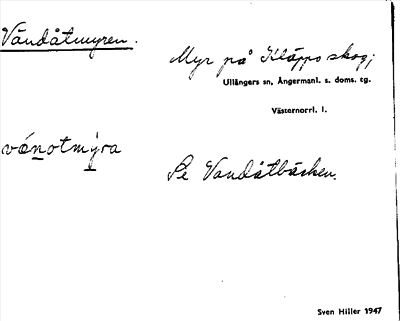 Vändåtmyren.
Myr på Kläppo skog;
Ullångers sn, Ångermanl. s. doms. tg.
Västernorrl. l.
vänotmýra
Se Vandåtbäcken.
Sven Hiller 1947